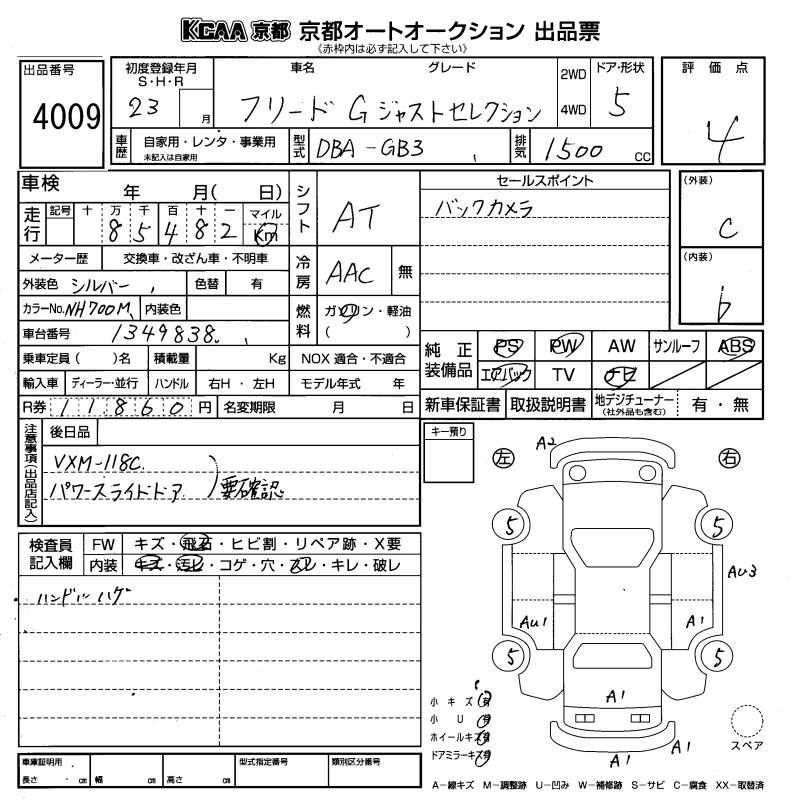 KCAA 京都 京都オートオークション 出品票
《赤枠内は必ず記入して下さい》
出品番号
4009
初度登録年月
S・H・R
23 月
車名 グレード
フリード G ジャストセレクション
2WD
4WD
ドア・形状
5
評価点
4
車歴
自家用・レンタ・事業用
未記入は自家用
型式
DBA-GB3
排気
1500 cc
車検 年 月( 日)
走行
記号 十 万 千 百 十 一 マイル
8 5 4 8 2 Km
シフト
AT
メーター歴 交換車・改ざん車・不明車
外装色 シルバー 色替 有
カラーNo. NH700M 内装色
車台番号 1349838
冷房
AAC 無
燃料
ガソリン・軽油
( )
乗車定員( )名 積載量 Kg NOX 適合・不適合
輸入車 ディーラー・並行 ハンドル 右H・左H モデル年式 年
R券 11860円 名変期限 月 日
セールスポイント
バックカメラ
(外装)
C
(内装)
b
純正装備品
PS PW AW サンルーフ ABS
エアバック TV ナビ
新車保証書 取扱説明書 地デジチューナー(社外品も含む) 有・無
注意事項(出品店記入)
後日品
VXM-118C
パワースライドドア
要確認
キー預り
左 右
A2
5 5
Au3
Au1 A1
5 5
A1
A1 A1
検査員記入欄
FW キズ・飛石・ヒビ割・リペア跡・X要
内装 キズ・汚レ・コゲ・穴・スレ・キレ・破レ
ハンドルハゲ
小キズ 有
小U 有
ホイールキズ 有
ドアミラーキズ 有
スペア
車庫証明用
長さ ㎝ 幅 ㎝ 高さ ㎝
型式指定番号 類別区分番号
A-線キズ M-調整跡 U-凹み W-補修跡 S-サビ C-腐食 XX-取替済